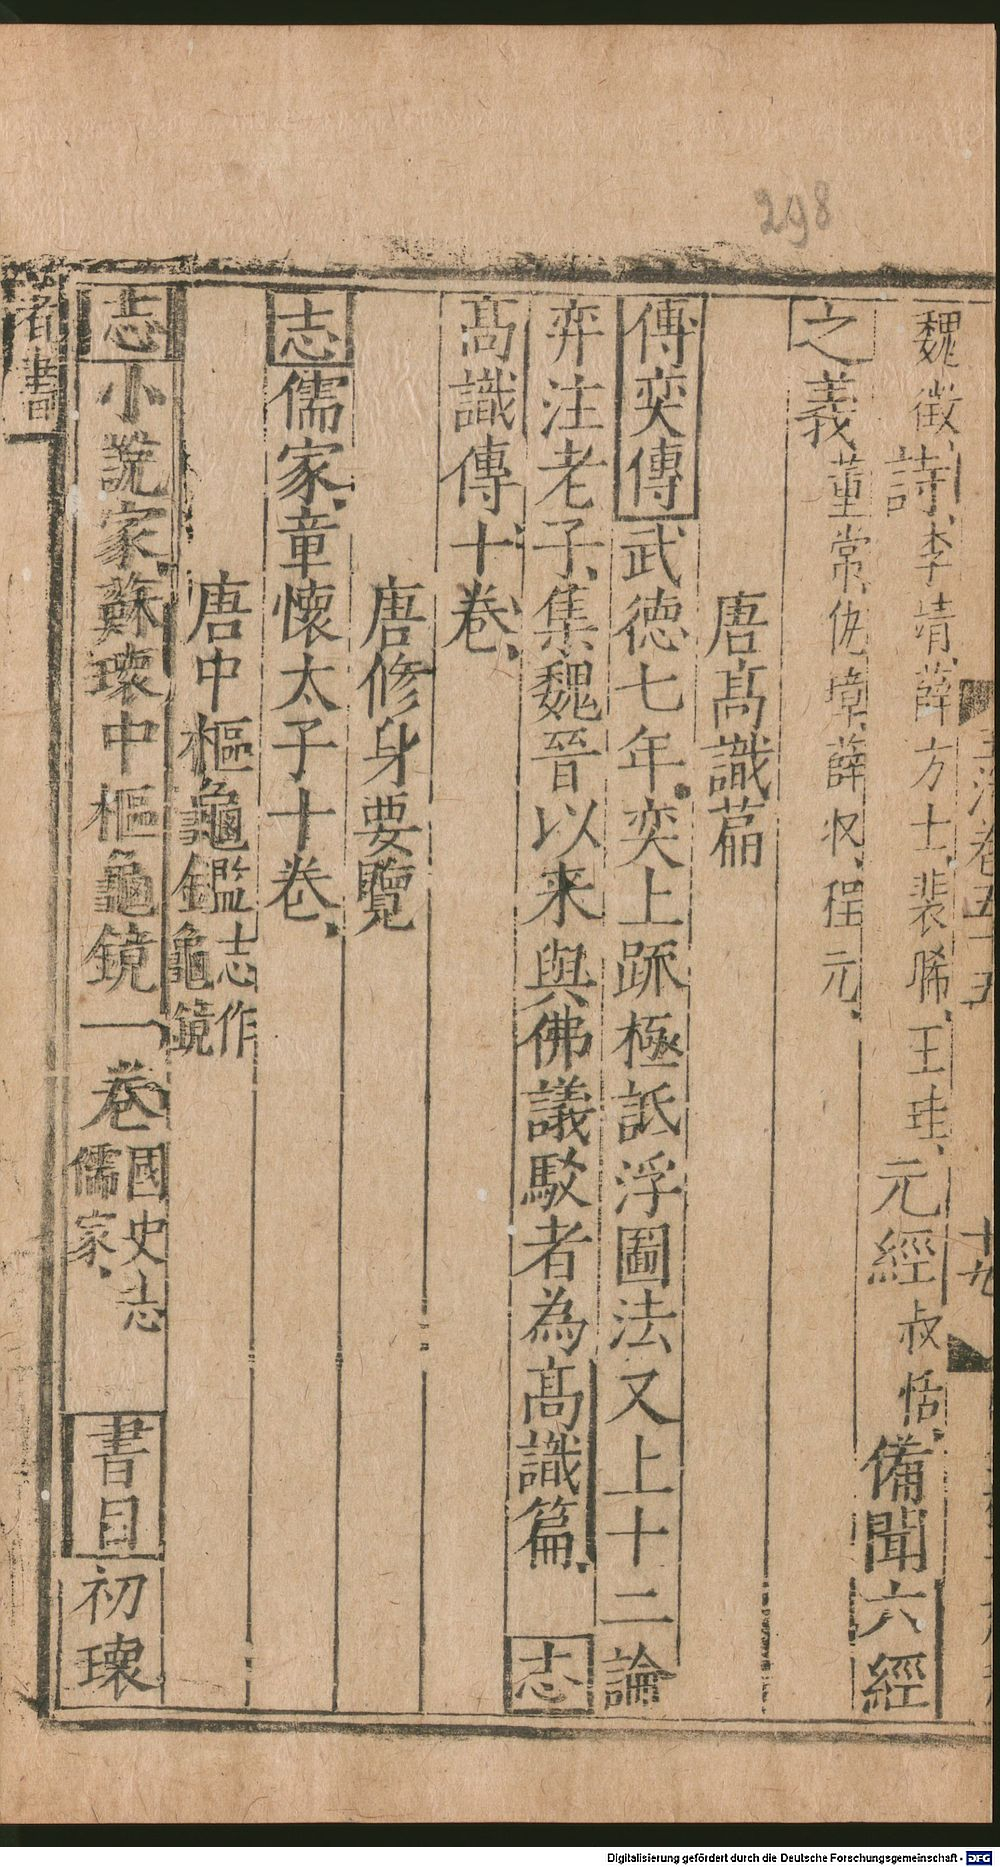 298
玉海卷五十五
十九
魏徵、詩、李靖、薛方士、裴晞、王珪、元經叔恬、備聞六經
之義董常、仇璋、薛收、程元、
唐髙識篇
傳奕傳武德七年奕上䟽極詆浮圖法又上十二論
奕注老子、集魏晉以來與佛議駁者為髙識篇、志
髙識傳十卷、
唐修身要覽
志儒家、章懷太子十卷、
唐中樞龜鑑志作龜鏡
志小說家、蘇瓌中樞龜鏡一卷國史志儒家、書目初瓌
著書
Digitalisierung gefördert durch die Deutsche Forschungsgemeinschaft - DFG